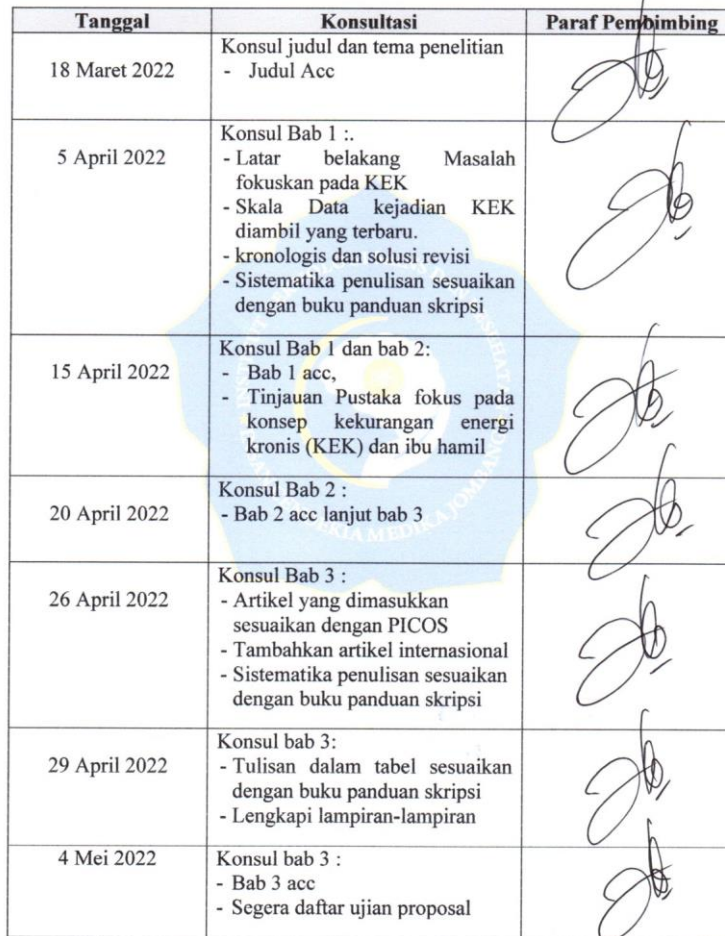 Tanggal Konsultasi Paraf Pembimbing
18 Maret 2022
Konsul judul dan tema penelitian
- Judul Acc
5 April 2022
Konsul Bab 1 :.
- Latar belakang Masalah
fokuskan pada KEK
- Skala Data kejadian KEK
diambil yang terbaru.
- kronologis dan solusi revisi
- Sistematika penulisan sesuaikan
dengan buku panduan skripsi
15 April 2022
Konsul Bab 1 dan bab 2:
- Bab 1 acc,
- Tinjauan Pustaka fokus pada
konsep kekurangan energi
kronis (KEK) dan ibu hamil
20 April 2022
Konsul Bab 2 :
- Bab 2 acc lanjut bab 3
26 April 2022
Konsul Bab 3 :
- Artikel yang dimasukkan
sesuaikan dengan PICOS
- Tambahkan artikel internasional
- Sistematika penulisan sesuaikan
dengan buku panduan skripsi
29 April 2022
Konsul bab 3:
- Tulisan dalam tabel sesuaikan
dengan buku panduan skripsi
- Lengkapi lampiran-lampiran
4 Mei 2022
Konsul bab 3 :
- Bab 3 acc
- Segera daftar ujian proposal
MEDIKA JOMBANG